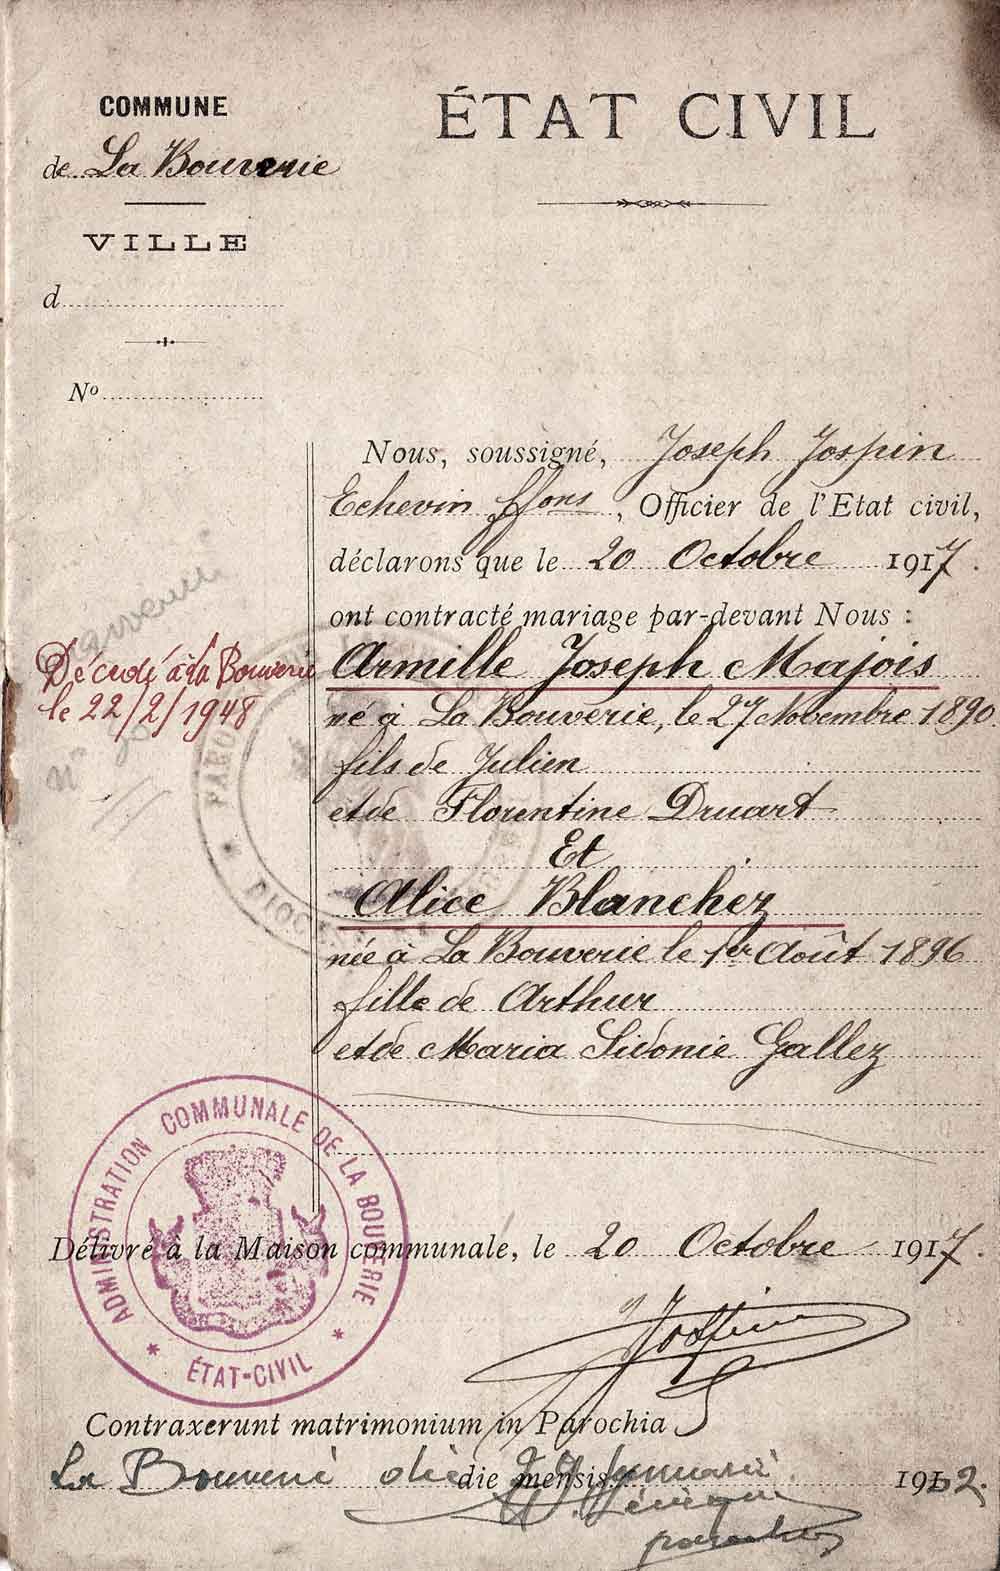 COMMUNE
de La Bouverie
VILLE
d
No
ÉTAT CIVIL
Nous, soussigné, Joseph Jospin
Echevin ffons, Officier de l'Etat civil,
déclarons que le 20 Octobre 1917.
ont contracté mariage par-devant Nous :
Armille Joseph Majois
né à La Bouverie, le 27 Novembre 1890.
fils de Julien
et de Florentine Druart
Et
Alice Blanchez
née à La Bouverie le 1er Août 1896
fille de Arthur
et de Maria Sidonie Gallez
Décédé à La Bouverie
le 22/2/1948
PARO
DIOC
ADMINISTRATION COMMUNALE DE LA BOUVERIE
* ÉTAT-CIVIL *
Délivré à la Maison communale, le 20 Octobre 1917.
Jospin
Contraxerunt matrimonium in Parochia
La Bouverie die mensis Januarii 19